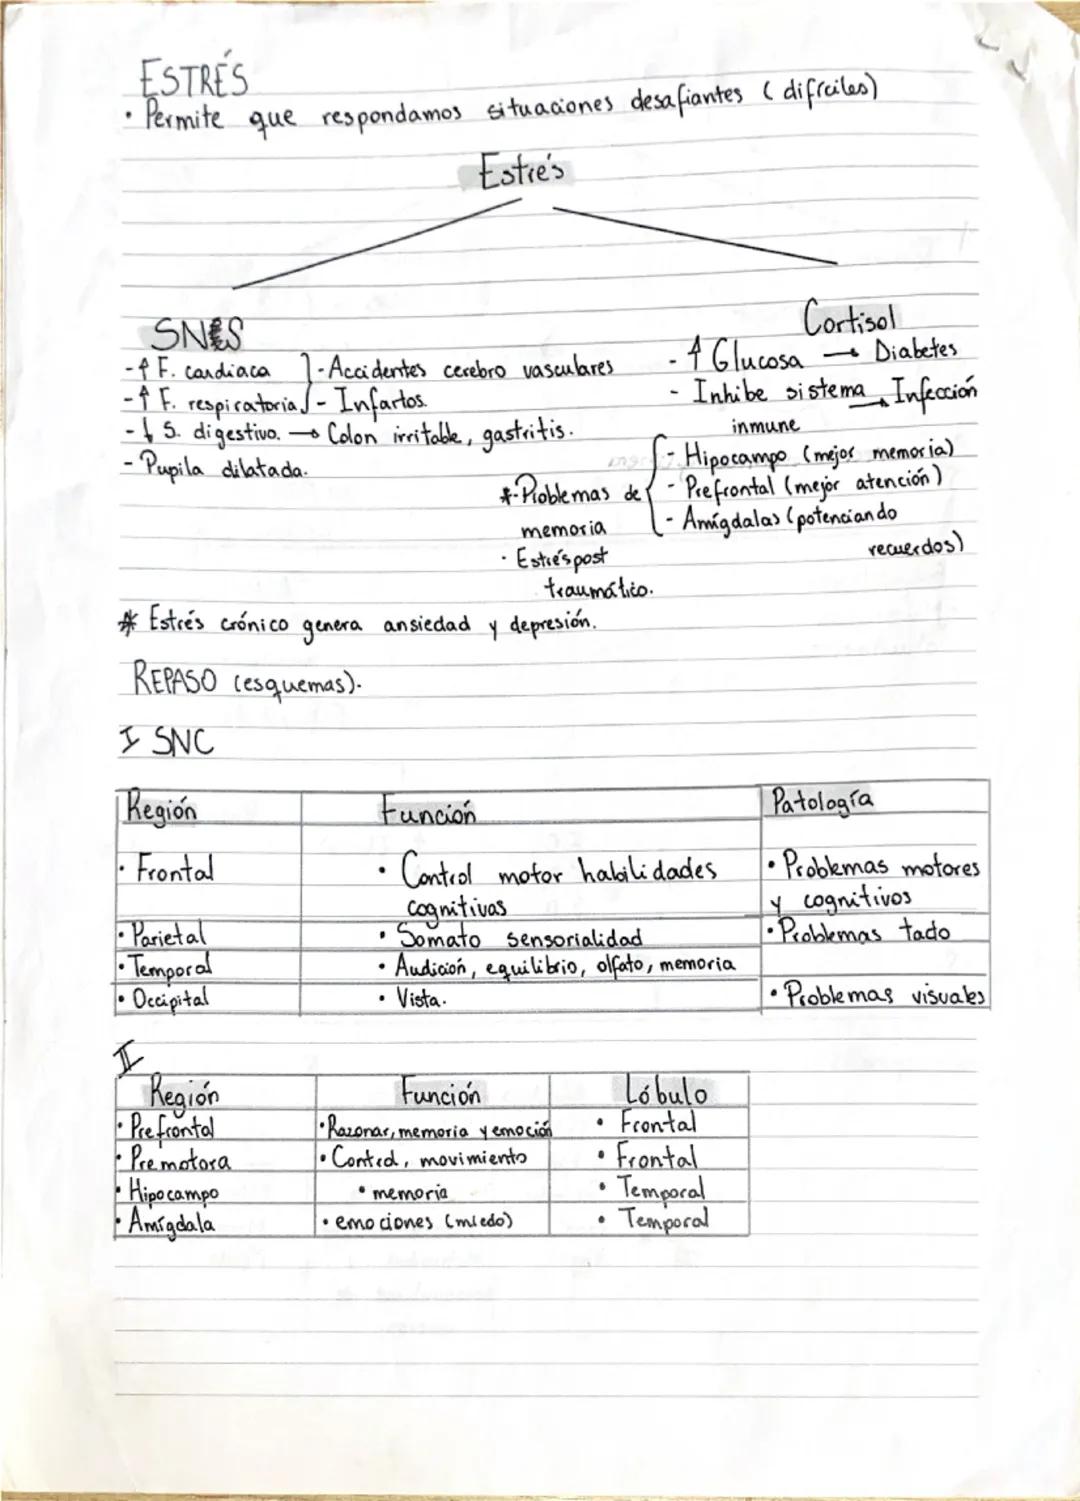 ESTRÉS
• Permite que respondamos situaciones desafiantes (difíciles)
Estrés
SNS
Cortisol
- ↑ F. cardiaca - Accidentes cerebro vasculares
- ↑ F. respiratoria - Infartos.
- ↓ S. digestivo. → Colon irritable, gastritis.
- Pupila dilatada.
- ↑ Glucosa → Diabetes
- Inhibe sistema → Infección
inmune
*- Problemas de
memoria
- Hipocampo (mejor memoria)
- Prefrontal (mejor atención)
- Amígdalas (potenciando
recuerdos)
· Estrés post
traumático.
* Estrés crónico genera ansiedad y depresión.
REPASO (esquemas).
I SNC
Región Función Patología
• Frontal • Control motor habilidades • Problemas motores
cognitivas y cognitivos
• Parietal • Somato sensorialidad • Problemas tado
• Temporal • Audición, equilibrio, olfato, memoria
• Occipital • Vista. • Problemas visuales
II
Región Función Lóbulo
• Prefrontal • Razonar, memoria y emoción • Frontal
• Premotora • Control, movimiento • Frontal
• Hipocampo • memoria • Temporal
• Amígdala • emociones (miedo) • Temporal